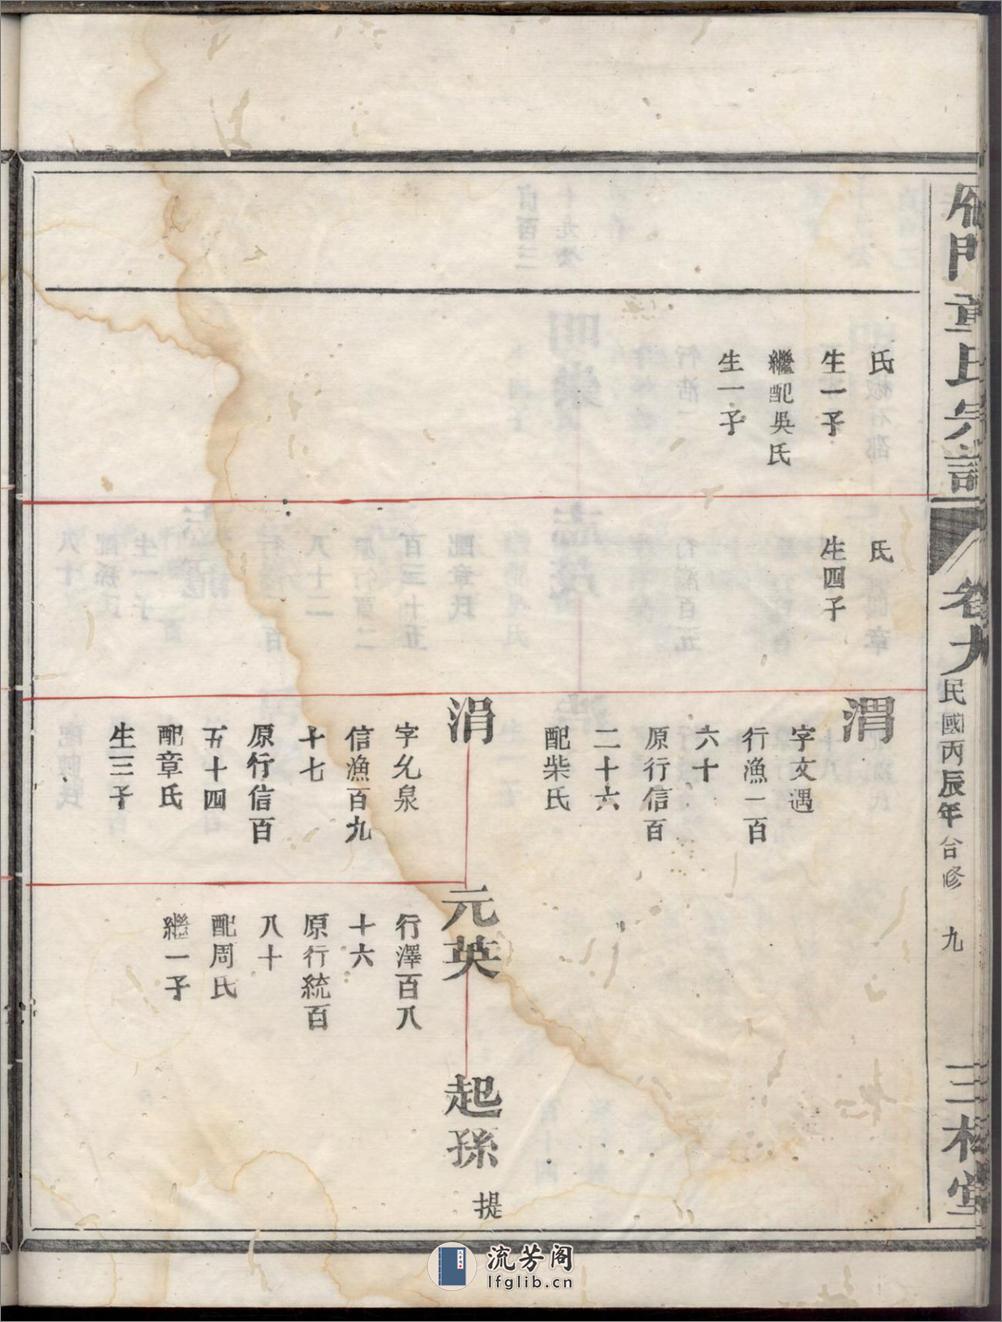 雁門童氏宗譜
卷九
民國丙辰年合修
九
三槐堂
氏
生一子
繼配吳氏
生一子
氏
生四子
渭
字文遇
行漁一百
六十
原行信百
二十六
配柴氏
涓
字允泉
信漁百九
十七
原行信百
五十四
配章氏
生三子
元英
行澤百八
十六
原行統百
八十
配周氏
繼一子
起孫
提
流芳阁
lfglib.cn